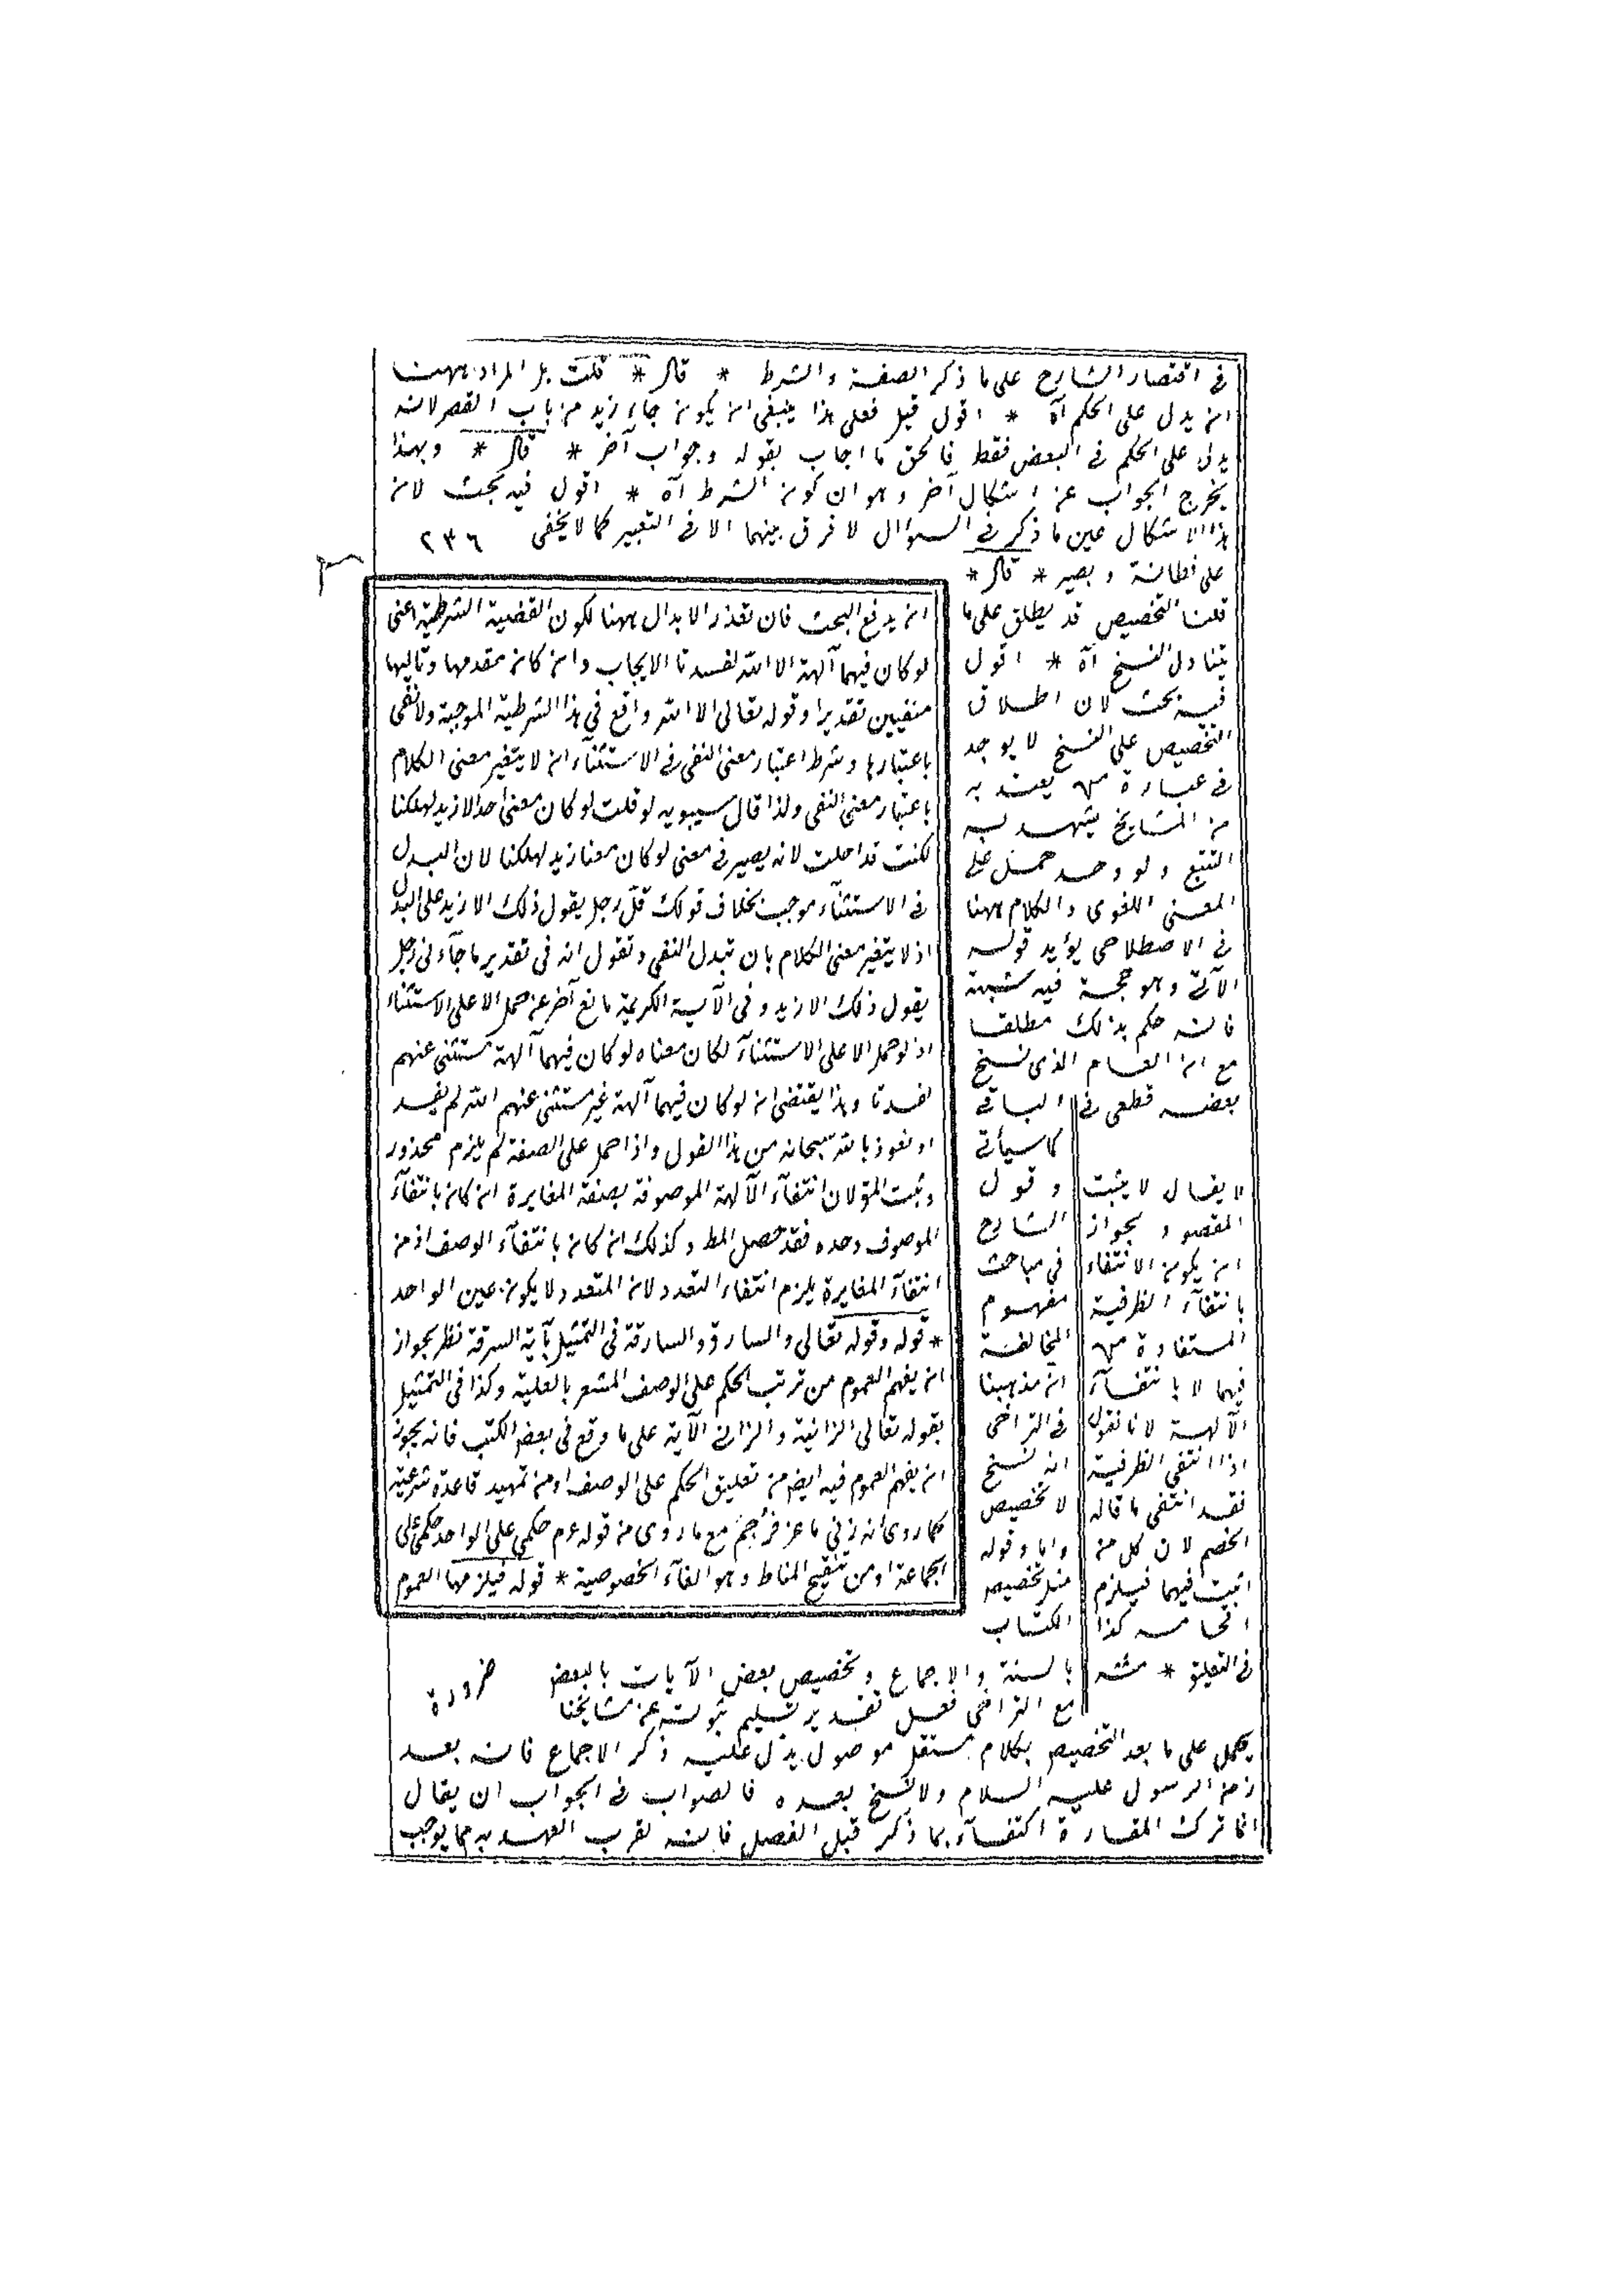 في اقتصار الشارح على ما ذكر الصفة والشرط * قال * قلت بل المراد ههنا
ان يدل على الحكم آه * اقول قيل فعلى هذا ينبغي ان يكون جاء زيد من باب القصر لانه
يدل على الحكم في البعض فقط فالحق ما اجاب بقوله وجواب آخر * قال * وبهذا
يخرج الجواب عن اشكال آخر وهو ان كون الشرط آه * اقول فيه بحث لان
هذا الاشكال عين ما ذكر في السؤال لا فرق بينهما الا في التعبير كما لا يخفى
٢٣٦
على فطانة وبصير * قال *
قلنا التخصيص قد يطلق على ما
يتناول النسخ آه * اقول
فيه بحث لان اطلاق
التخصيص على النسخ لا يوجد
في عبارة من يعتد به
من المشايخ يشهد به
التتبع ولو وجد حمل على
المعنى اللغوي والكلام ههنا
في الاصطلاحي يؤيد قوله
الآتي وهو حجة فيه شبهة
فانه حكم بذلك مطلقا
مع ان العام الذي نسخ
بعضه قطعي في الباقي
كما سيأتي
وقول
الشارح
في مباحث
مفهوم
المخالفة
ان مذهبنا
في التراخي
انه نسخ
لا تخصيص
واما قوله
مثل تخصيص
الكتاب
بالسنة والاجماع وتخصيص بعض الآيات بالبعض
مع التراخي فعلى تقدير تسليم ثبوته عن مشايخنا
ضرورة
يحمل على ما بعد التخصيص بكلام مستقل موصول يدل عليه ذكر الاجماع فانه بعد
زمن الرسول عليه السلام ولا نسخ بعده فالصواب في الجواب ان يقال
انما ترك المقارنة اكتفاء بما ذكر قبل الفصل فانه لقرب العهد به مما يوجب
لا يقال لا يثبت
المقصود بجواز
ان يكون الانتفاء
بانتفاء الظرفية
المستفادة من
فيهما لا بانتفاء
الآلهة لانا نقول
اذا انتفى الظرفية
فقد انتفى ما قاله
الخصم لان كل من
اثبت فيهما فيلزم
افحامه كذا
في التعليق * منه
ان يدفع البحث فان تعذر الابدال ههنا لكون القضية الشرطية اعنى
لو كان فيهما آلهة الا الله لفسدتا الايجاب وان كان مقدمها وتاليها
منفيين تقديرا وقوله تعالى الا الله واقع في هذا الشرطية الموجبة ولا نفى
باعتبارها وشرط اعتبار معنى النفى في الاستثناء ان لا يتغير معنى الكلام
باعتبار معنى النفى ولذا قال سيبويه لو قلت لو كان معنى احد الا زيد لهلكنا
لكنت قد احلت لانه يصير في معنى لو كان معنا زيد لهلكنا لان البدل
في الاستثناء موجب بخلاف قولك قل رجل يقول ذلك الا زيد على البدل
اذ لا يتغير معنى الكلام بان تبدل النفى وتقول انه في تقدير ما جاءنى رجل
يقول ذلك الا زيد وفى الآية الكريمة مانع آخر عن حمل الا على الاستثناء
اذ لو حمل الا على الاستثناء لكان معناه لو كان فيهما آلهة مستثنى عنهم
لفسدتا وهذا يقتضى ان لو كان فيهما آلهة غير مستثنى عنهم الله لم يفسد
او نعوذ بالله سبحانه من هذا القول واذا حمل على الصفة لم يلزم محذور
وثبت المق لان انتفاء الآلهة الموصوفة بصفة المغايرة ان كان بانتفاء
الموصوف وحده فقد حصل المط وكذلك ان كان بانتفاء الوصف اذ من
انتفاء المغايرة يلزم انتفاء التعدد لان المتعدد لا يكون عين الواحد
* قوله وقوله تعالى والسارق والسارقة في التمثيل بآية السرقة نظر بجواز
ان يفهم العموم من ترتب الحكم على الوصف المشعر بالعلية وكذا في التمثيل
بقوله تعالى الزانية والزاني الآية على ما وقع في بعض الكتب فانه يجوز
ان يفهم العموم فيه ايض من تعليق الحكم على الوصف او من تمهيد قاعدة شرعية
كما روى انه زنى ماعز فرجم مع ما روى من قوله عم حكمى على الواحد حكمى على
الجماعة او من تنقيح المناط وهو الغاء الخصوصية * قوله فيلزمها العموم